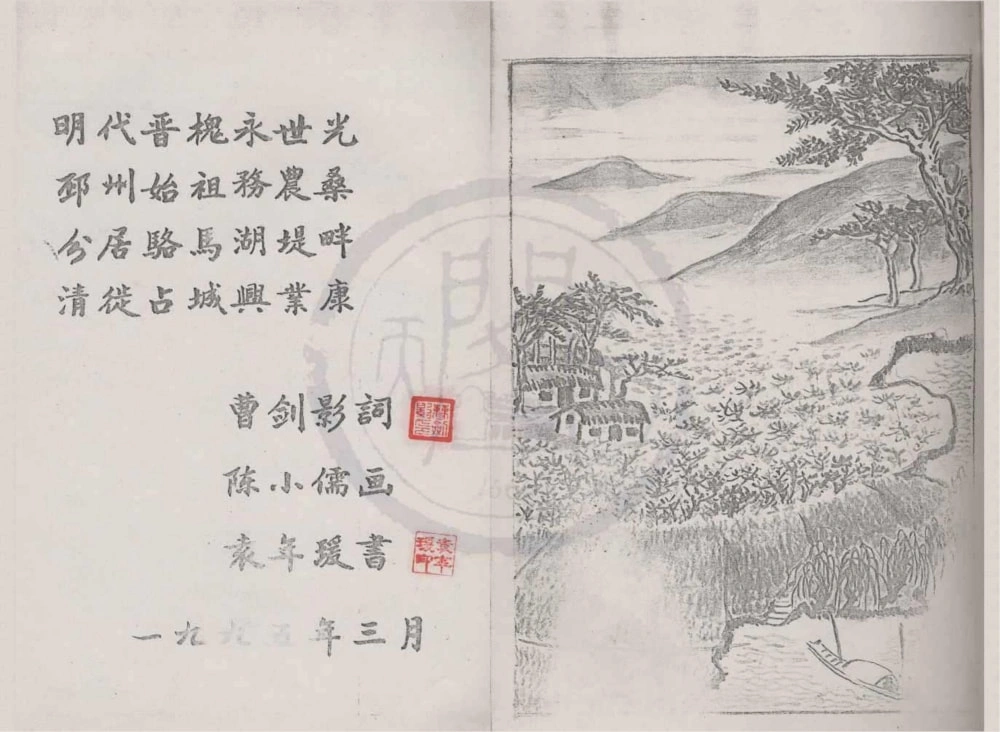 明代晋槐永世光
邳州始祖務農桑
分居駱馬湖堤畔
清徙占城興業康
曹剑影詞
陈小儒画
袁年瑗書
袁年瑗印
一九九五年三月